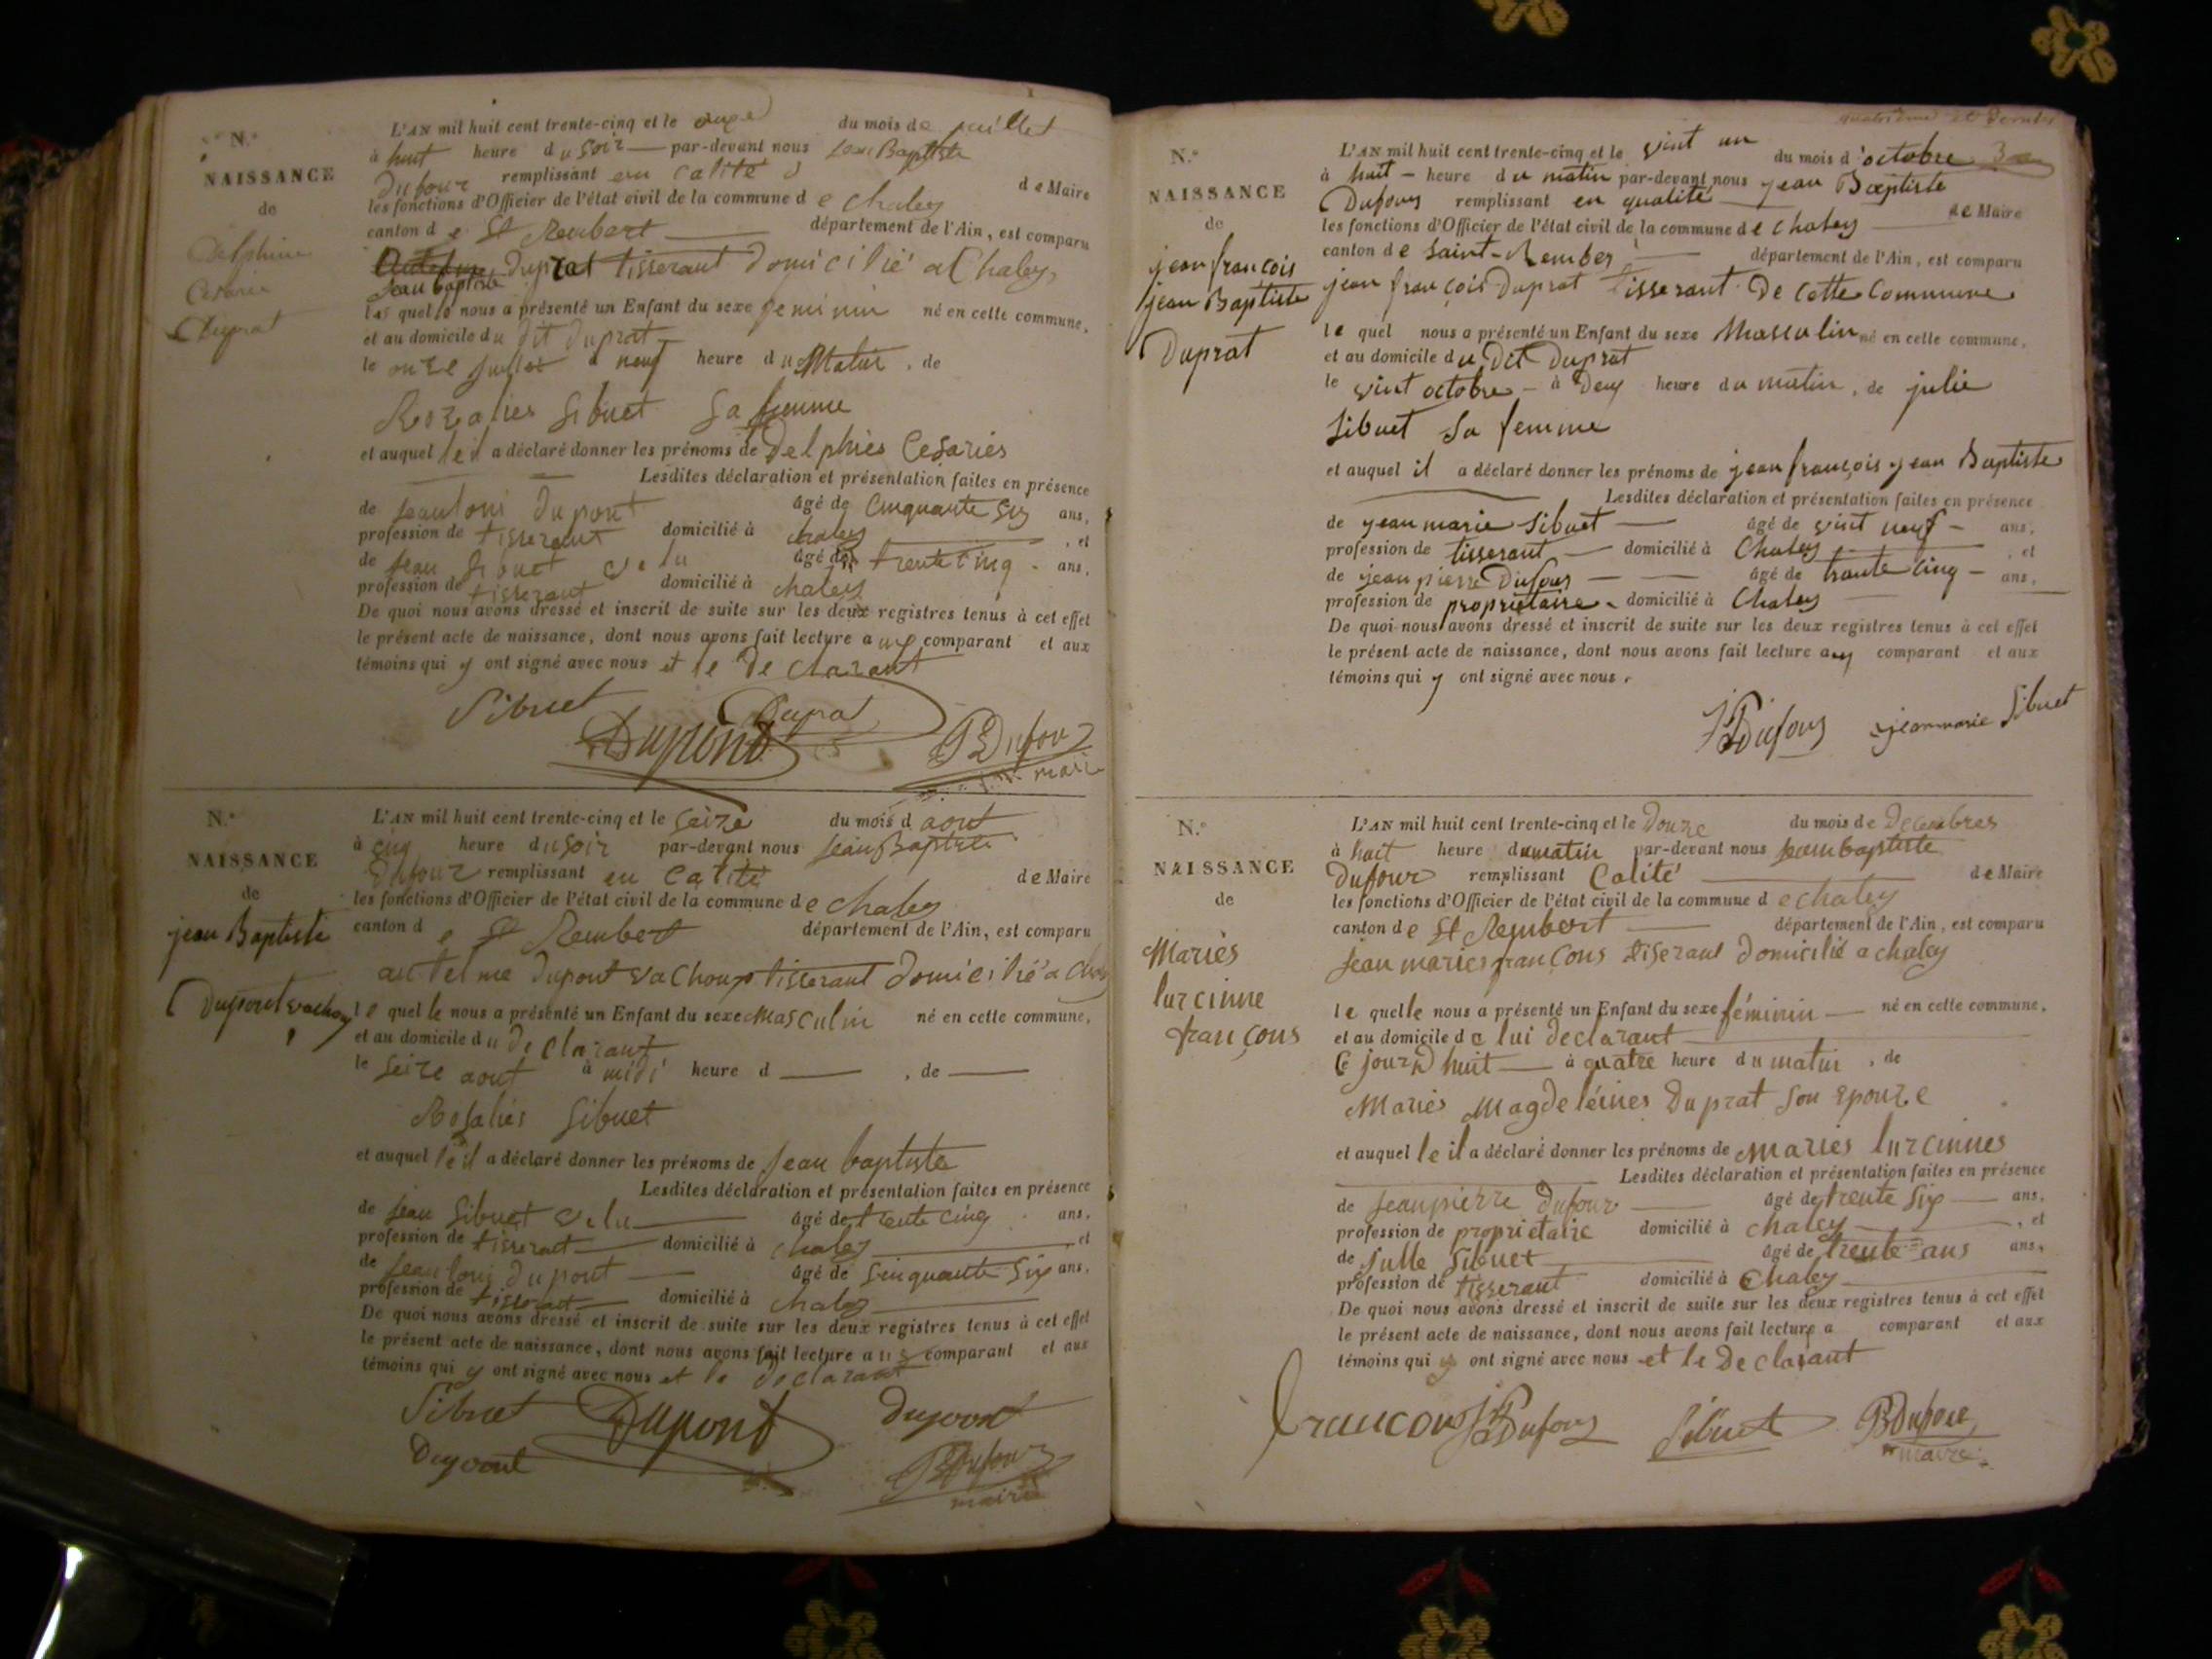 N.º
NAISSANCE
de
Delphine
Césarie
Duprat
L'AN mil huit cent trente-cinq et le onze du mois de juillet
à huit heure du soir par-devant nous Jean Baptiste
Dufour remplissant en calité d de Maire
les fonctions d'Officier de l'état civil de la commune de chaley
canton de St Rembert département de l'Ain, est comparu
Duprat tisserant domicilié a Chaley
Jean baptiste
le quel nous a présenté un Enfant du sexe feminin né en cette commune,
et au domicile du dit duprat
le onze juillet à neuf heure du Matin, de
Rozalies Sibuet Sa femme
et auquel le il a déclaré donner les prénoms de Delphies Cesaries
Lesdites déclaration et présentation faites en présence
de jean loui Dupont âgé de Cinquante six ans,
profession de tisserant domicilié à chaley, et
de jean Sibuet velu âgé de trente cinq ans,
profession de tisserant domicilié à chaley
De quoi nous avons dressé et inscrit de suite sur les deux registres tenus à cet effet
le présent acte de naissance, dont nous avons fait lecture a comparant et aux
témoins qui y ont signé avec nous et le De clarant
Sibuet Duprat
Dupont JB Dufour
maire
N.º
NAISSANCE
de
jean Baptiste
Dupont vachoux
L'AN mil huit cent trente-cinq et le seize du mois d aout
à cinq heure du soir par-devant nous jean Baptiste
Dufour remplissant en Calité de Maire
les fonctions d'Officier de l'état civil de la commune de chaley
canton de St Rembert département de l'Ain, est comparu
antelme Dupont vachoux tisserant domicilié a
le quel le nous a présenté un Enfant du sexe masculin né en cette commune,
et au domicile du declarant
le seize aout à midi heure d, de
Rosalies Sibuet
et auquel le il a déclaré donner les prénoms de jean baptiste
Lesdites déclaration et présentation faites en présence
de jean Sibuet velu âgé de trente cinq ans,
profession de tisserant domicilié à chaley et
de jean loui dupont âgé de sinquante six ans,
profession de tisserant domicilié à chaley
De quoi nous avons dressé et inscrit de suite sur les deux registres tenus à cet effet
le présent acte de naissance, dont nous avons fait lecture a comparant et aux
témoins qui y ont signé avec nous et le declarant
Sibuet Dupont dupont
Dupont JB Dufour
maire
quatrième et dernier
N.º
NAISSANCE
de
jean françois
jean Baptiste
Duprat
L'AN mil huit cent trente-cinq et le vint un du mois d'octobre
à huit heure du matin par-devant nous jean Baptiste
Dufour remplissant en qualité de Maire
les fonctions d'Officier de l'état civil de la commune de Chaley
canton de Saint-Rember département de l'Ain, est comparu
jean françois Duprat tisserant De cette Commune
le quel nous a présenté un Enfant du sexe Masculin né en cette commune,
et au domicile du Dit Duprat
le vint octobre à Deux heure du matin, de julie
Sibuet Sa femme
et auquel il a déclaré donner les prénoms de jean françois jean Baptiste
Lesdites déclaration et présentation faites en présence
de jean marie Sibuet âgé de vint neuf ans,
profession de tisserant domicilié à Chaley, et
de jean pierre Dufour âgé de trante cinq ans,
profession de propriétaire domicilié à Chaley
De quoi nous avons dressé et inscrit de suite sur les deux registres tenus à cet effet
le présent acte de naissance, dont nous avons fait lecture au comparant et aux
témoins qui y ont signé avec nous.
JP Dufour jean marie Sibuet
N.º
NAISSANCE
de
Mariès
lurcinne
françons
L'AN mil huit cent trente-cinq et le Douze du mois de Decembres
à huit heure du matin par-devant nous jean baptiste
Dufour remplissant Calité de Maire
les fonctions d'Officier de l'état civil de la commune de chaley
canton de St Rembert département de l'Ain, est comparu
jean maries françons tiserant domicilié a chaley
le quelle nous a présenté un Enfant du sexe féminin né en cette commune,
et au domicile de lui declarant
Ce jourd huit à quatre heure du matin, de
Mariès Magdeléines Duprat Son Epouze
et auquel le il a déclaré donner les prénoms de Mariès lurcinnes
Lesdites déclaration et présentation faites en présence
de Jean pierre Dufour âgé de trente six ans,
profession de proprietaire domicilié à chaley, et
de Sibuet âgé de trente ans ans,
profession de tisserant domicilié à Chaley
De quoi nous avons dressé et inscrit de suite sur les deux registres tenus à cet effet
le présent acte de naissance, dont nous avons fait lecture a comparant et aux
témoins qui y ont signé avec nous et le Declarant
francons JP Dufour Sibuet JB Dufour
maire